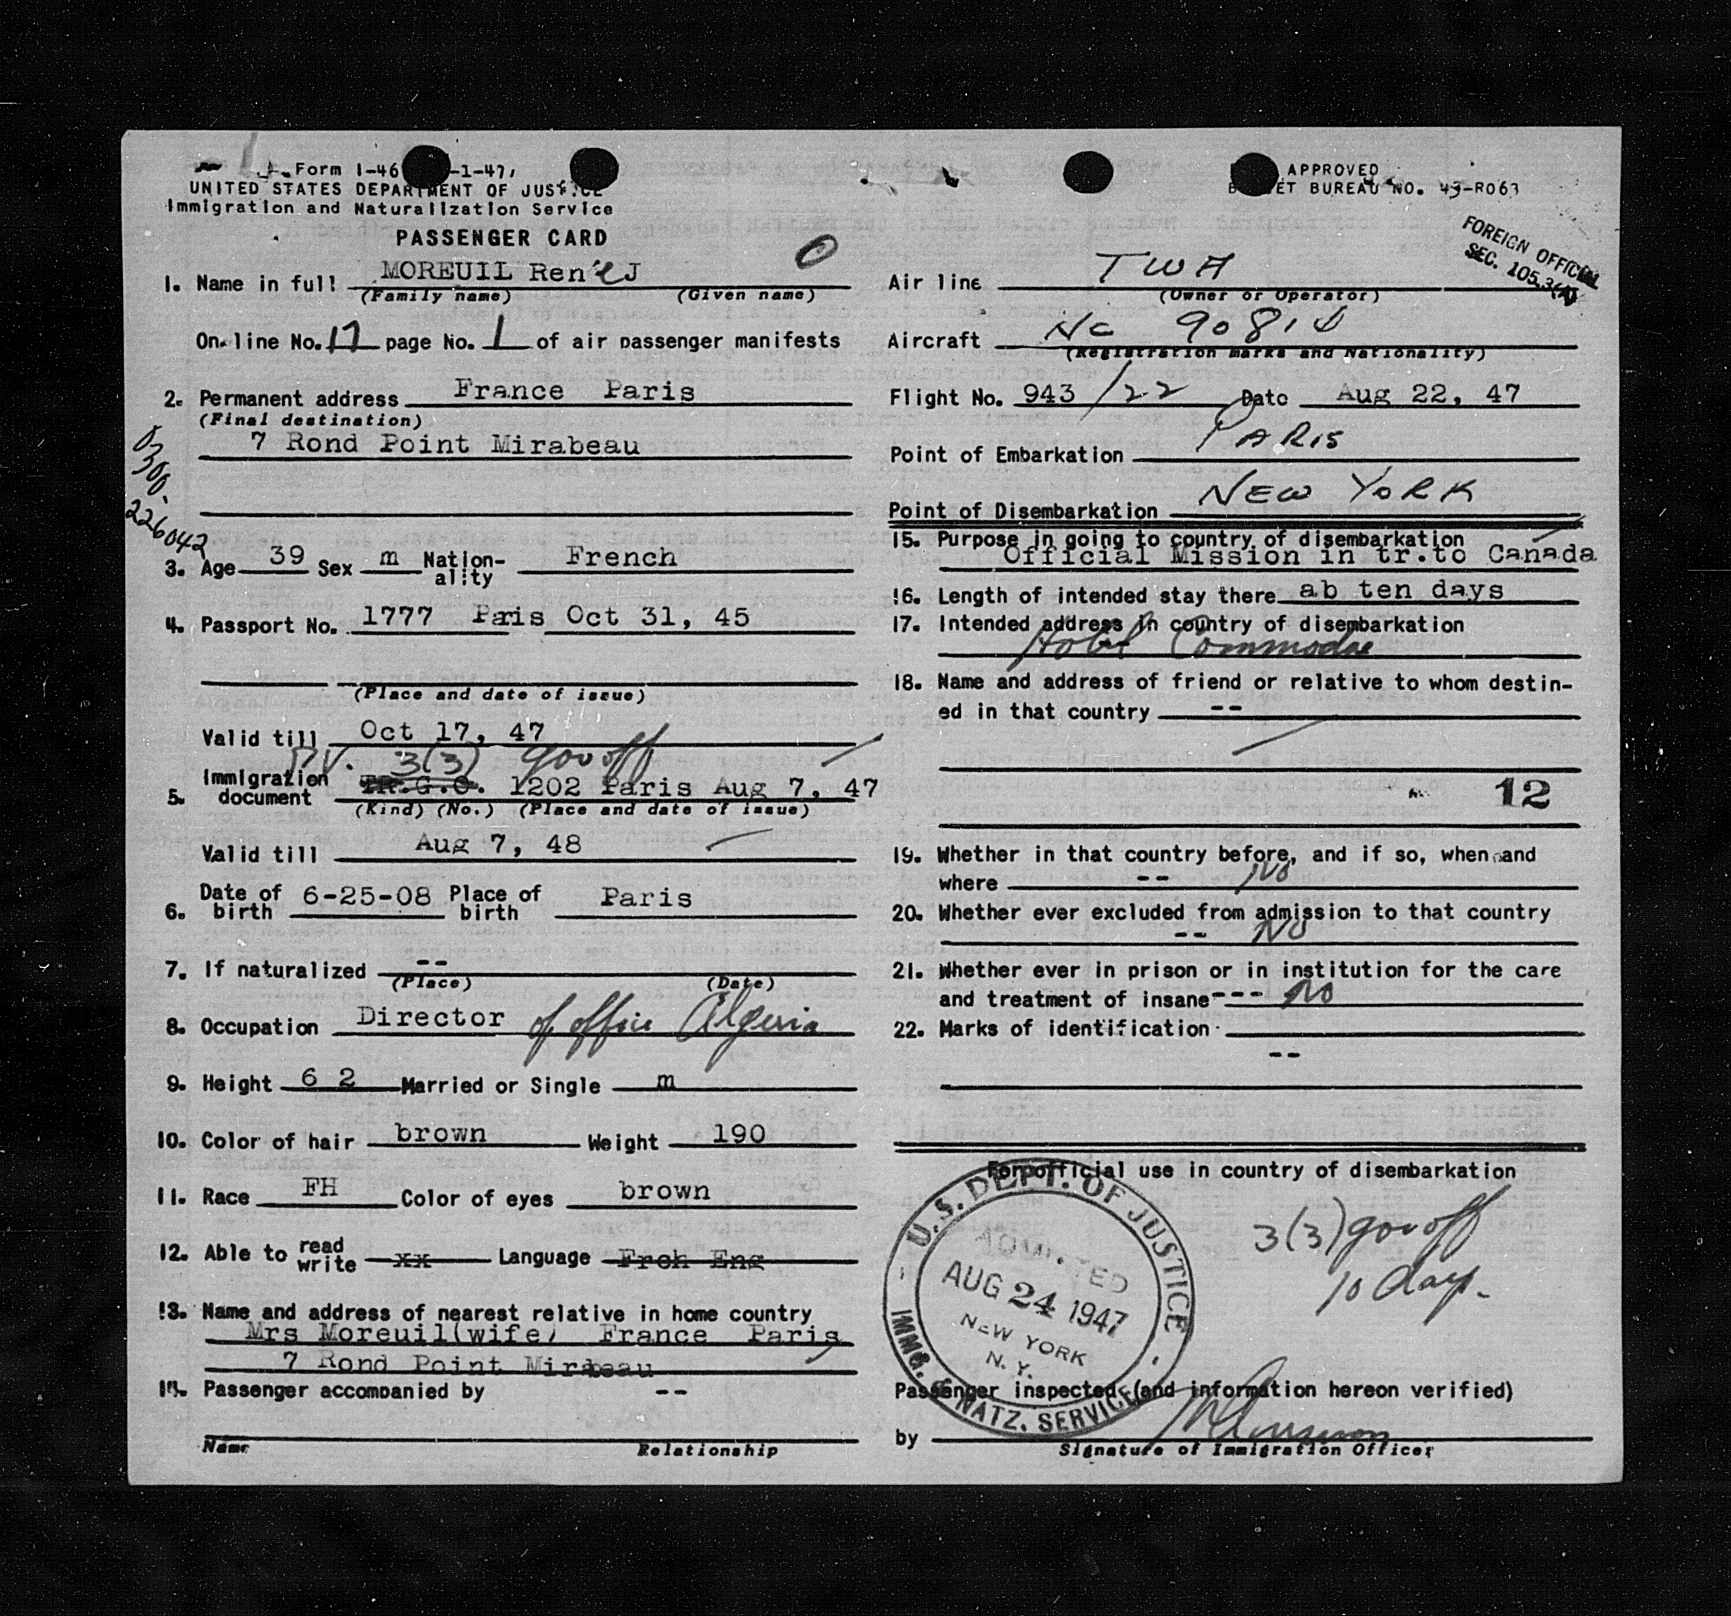 Form I-46 -1-47
UNITED STATES DEPARTMENT OF JUSTICE
Immigration and Naturalization Service
PASSENGER CARD
APPROVED
BUDGET BUREAU NO. 43-R063
FOREIGN OFFICIAL
SEC. 105.3(A)
1. Name in full MOREUIL René J
(Family name) (Given name)
On-line No. 17 page No. 1 of air passenger manifests
2. Permanent address France Paris
(Final destination)
7 Rond Point Mirabeau
0300-
226042
3. Age 39 Sex m Nation-ality French
4. Passport No. 1777 Paris Oct 31, 45
(Place and date of issue)
Valid till Oct 17, 47
PV. 3(3) gov off
5. Immigration document TR.G.O. 1202 Paris Aug 7, 47
(Kind) (No.) (Place and date of issue)
Valid till Aug 7, 48
6. Date of birth 6-25-08 Place of birth Paris
7. If naturalized --
(Place) (Date)
8. Occupation Director of office Algeria
9. Height 6 2 Married or Single m
10. Color of hair brown Weight 190
11. Race FH Color of eyes brown
12. Able to read write xx Language Frch Eng
13. Name and address of nearest relative in home country
Mrs Moreuil(wife) France Paris
7 Rond Point Mirabeau
14. Passenger accompanied by --
Name Relationship
Air line TWA
(Owner or Operator)
Aircraft NC 90818
(Registration marks and Nationality)
Flight No. 943 /22 Date Aug 22, 47
Point of Embarkation PARIS
Point of Disembarkation NEW YORK
15. Purpose in going to country of disembarkation
Official Mission in tr.to Canada
16. Length of intended stay there ab ten days
17. Intended address in country of disembarkation
Hotel Commodore
18. Name and address of friend or relative to whom destin-
ed in that country --
12
19. Whether in that country before, and if so, when and
where -- No
20. Whether ever excluded from admission to that country
-- No
21. Whether ever in prison or in institution for the care
and treatment of insane --- No
22. Marks of identification
--
For official use in country of disembarkation
U.S. DEPT. OF JUSTICE
ADMITTED
AUG 24 1947
NEW YORK
N.Y.
IMMG. & NATZ. SERVICE
3(3) gov off
10 days.
Passenger inspected (and information hereon verified)
by
Signature of Immigration Officer